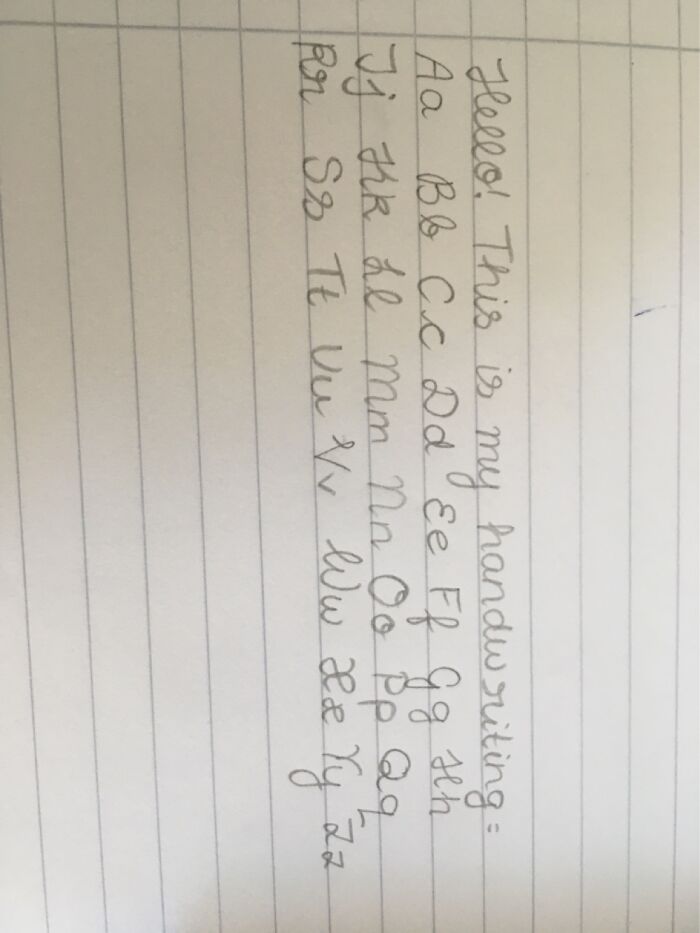 Hello! This is my handwriting:
Aa Bb Cc Dd Ee Ff Gg Hh
Jj Kk Ll Mm Nn Oo Pp Qq
Rr Ss Tt Uu Vv Ww Xx Yy Zz